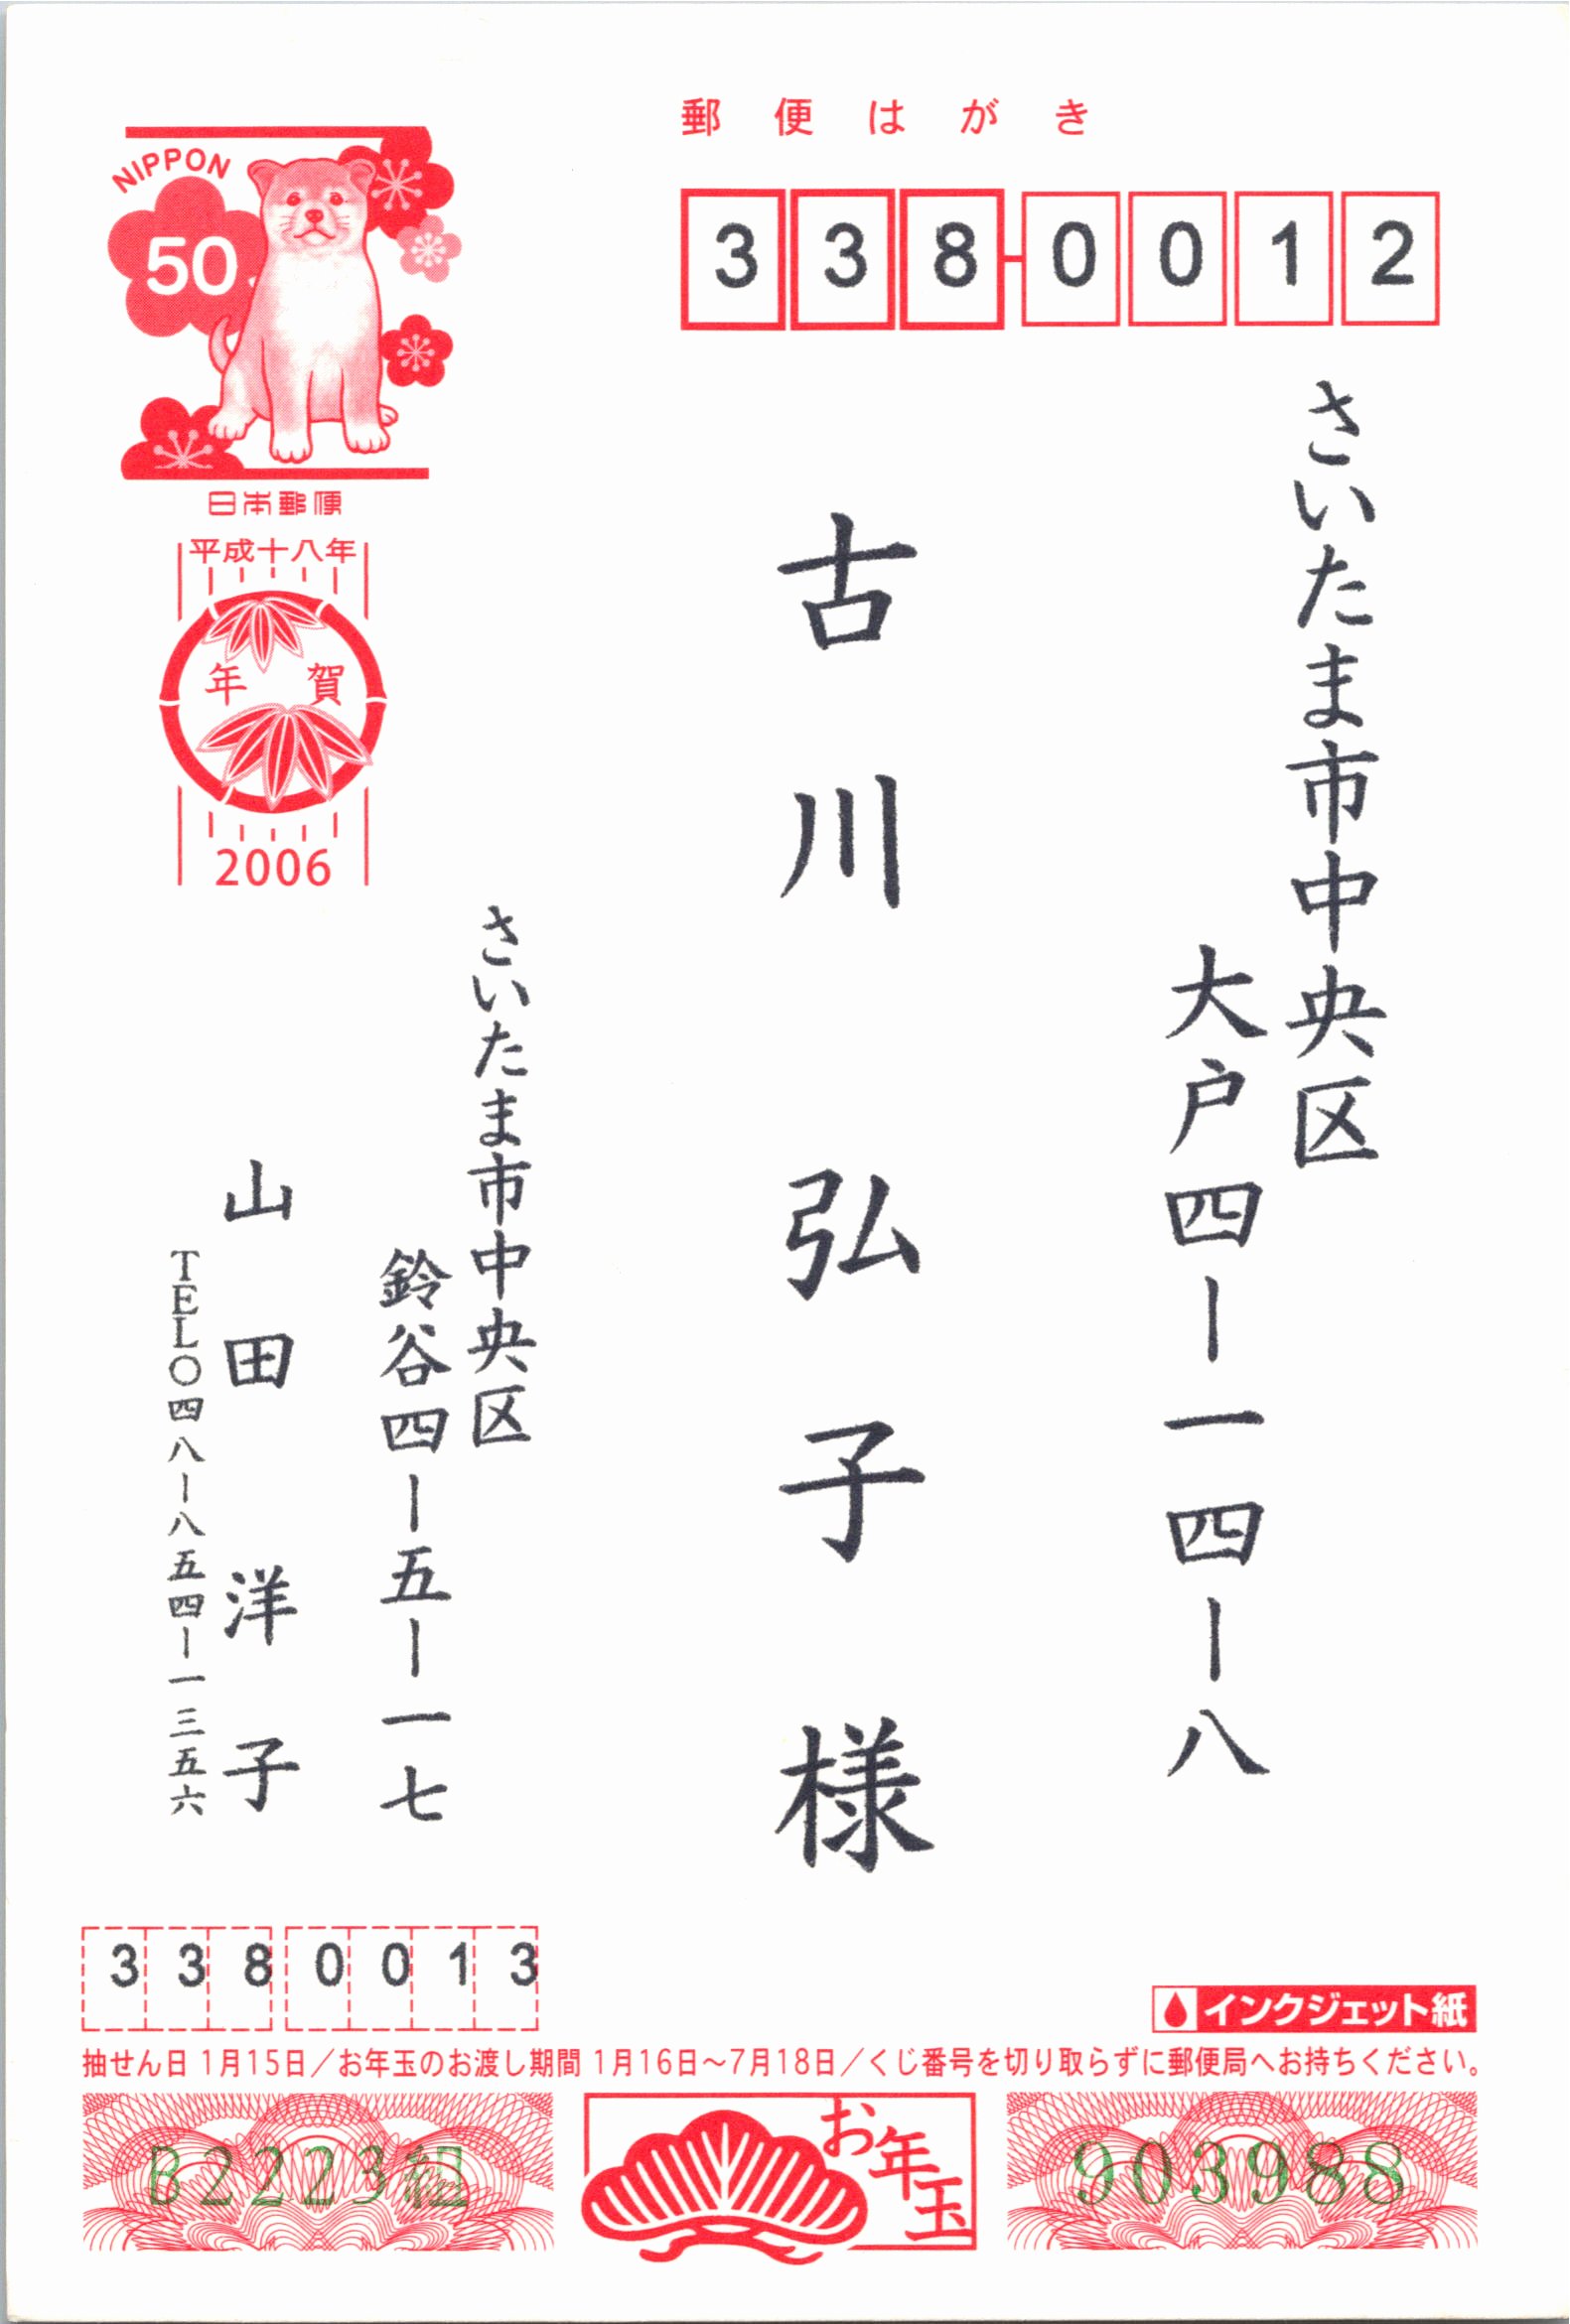 郵便はがき
338-0012
さいたま市中央区
大戸四ー一四ー八
古川 弘子 様
NIPPON
50
日本郵便
平成十八年
年賀
2006
さいたま市中央区
鈴谷四ー五ー一七
山田 洋子
TEL〇四八ー八五四ー一三五六
3380013
インクジェット紙
抽せん日 1月15日／お年玉のお渡し期間 1月16日～7月18日／くじ番号を切り取らずに郵便局へお持ちください。
B2223組
お年玉
903988